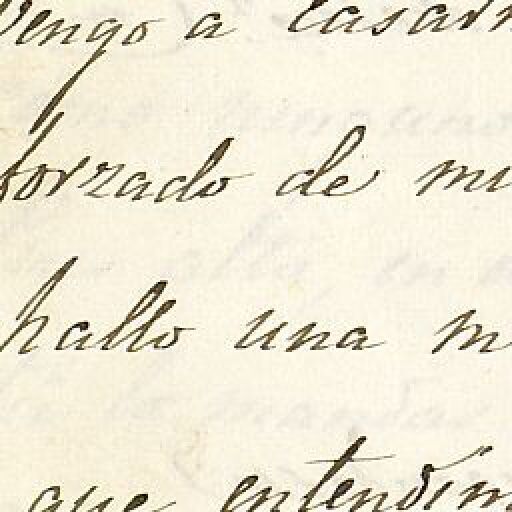 vengo a casar
forzado de mi
hallo una m
que entendim